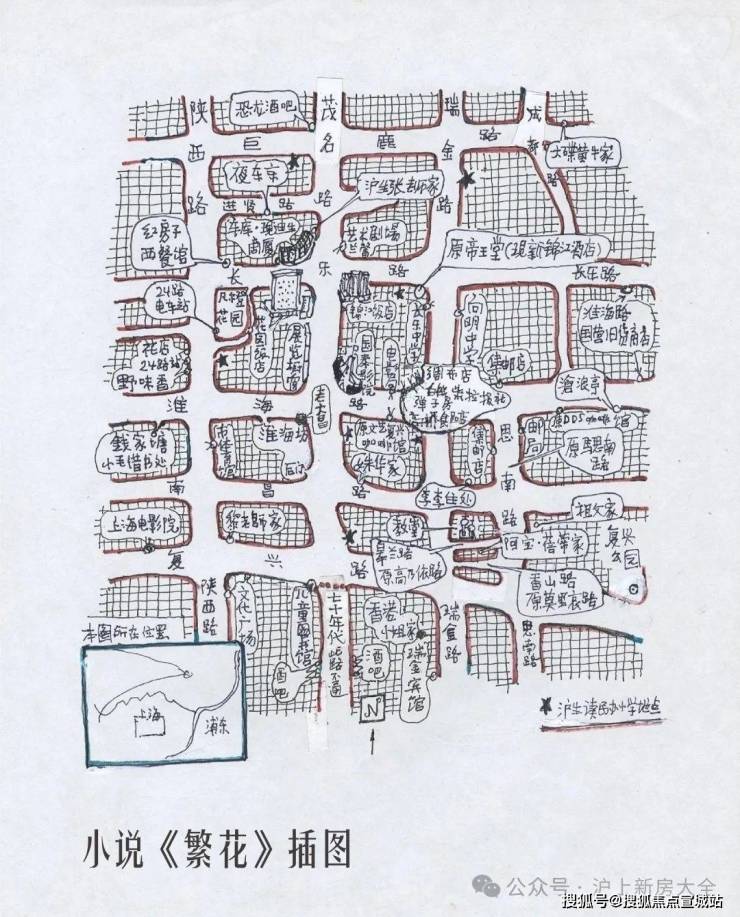 陕西路
恐龙酒吧
茂名
瑞金路
成都路
大碟黄牛家
巨鹿路
夜东京
进贤路
沪生张老师家
红房子
西餐馆
艺术剧场
兰馨
原帝王堂(现新锦江酒店)
长乐路
长乐路
24路
电车站
凡尔登
花园
花园饭店
展览橱窗
锦江饭店
国泰电影院
向明中学
集邮店
淮海路
国营旧货商店
花店
24路站
野味香
淮海路
老大昌
弹子房
沧浪亭
原DDS咖啡馆
邮局
原马思南
路
思南路
钱家塘
小毛借书处
体育馆
淮海坊
后门
原文艺复兴
咖啡馆
姝华家
集邮店
李李住处
上海电影院
南昌路
黎老师家
教堂
皋兰路
原高乃依路
祖父家
阿宝·蓓蒂家
复兴公园
香山路
原莫里哀路
复兴路
陕西路
文化广场
儿童图书馆
酒吧
七十年代
此路不通
香港
小姐家
酒吧
瑞金宾馆
瑞金路
思南路
本图所在位置
上海
浦东
N
★沪生读民办小学地点
小说《繁花》插图
公众号·沪上新房大全
搜狐号@搜狐焦点宣城站